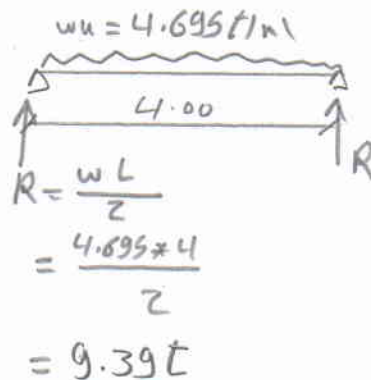 wu = 4.695 t/ml
4.00
R R
R = wL / 2
= 4.695*4 / 2
= 9.39t